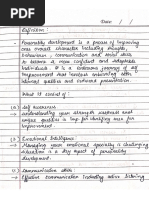 Date: / /
Definition :
Personality development is a process of improving
one overall character including thoughts,
behaviour, communication and social skills
to become a more confident and adaptable
individuals. It is a continuous journey of self
improvement that involves
and outward presentation.
What it consist of :
(1) Self awareness
Understanding your strength weakness and
unique qualities is for self improvement.
(2) Emotional Intelligence
Managing your emotions especially in challenging
situation is a key aspect of personality
development.
(3) Communication skills
Effective communication including active listening